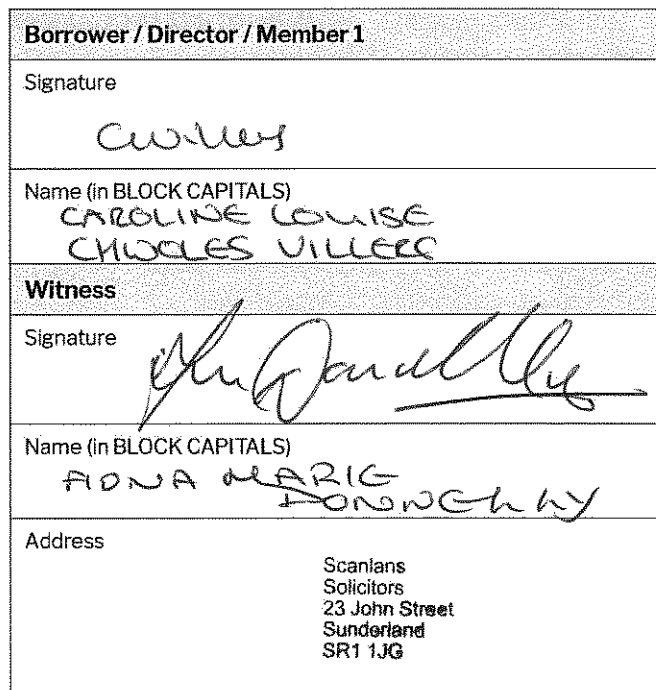 Borrower / Director / Member 1
Signature
Name (in BLOCK CAPITALS)
CAROLINE LOUISE
VILLERS
Witness
Signature
Name (in BLOCK CAPITALS)
MARIE
DONNELLY
Address
Scanlans
Solicitors
23 John Street
Sunderland
SR1 1JG